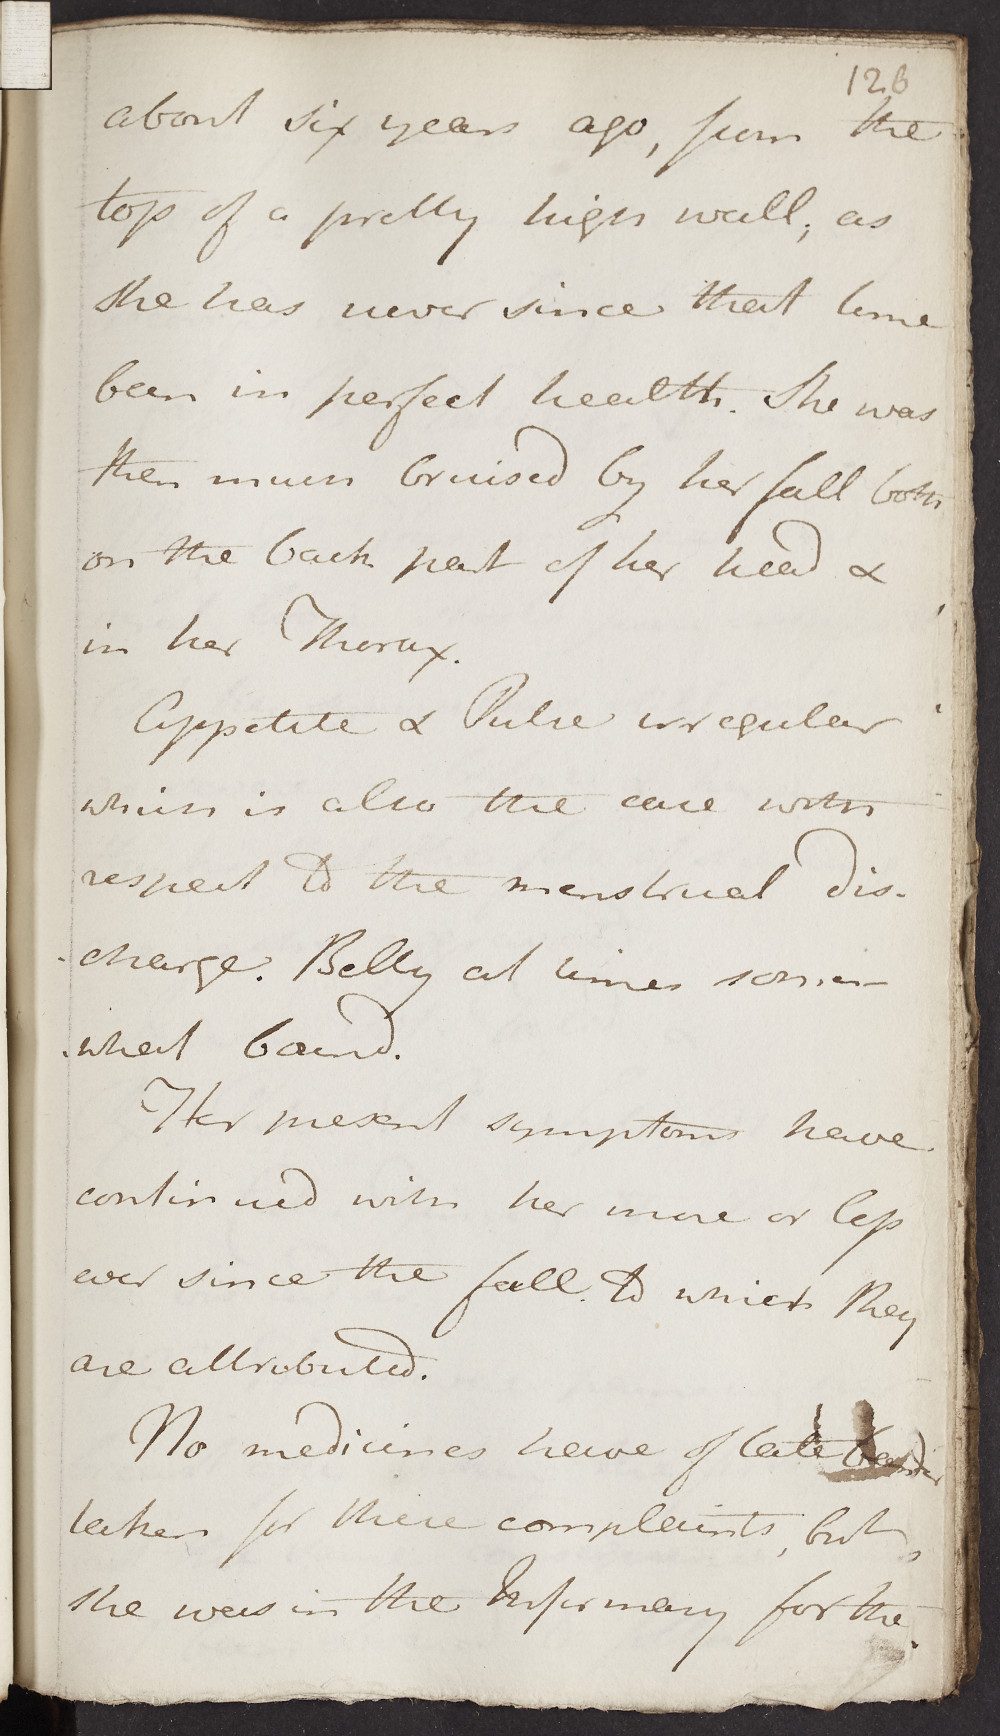 126
about six years ago, from the
top of a pretty high wall, as
she has never since that time
been in perfect health. She was
then much bruised by her fall both
on the back part of her head &
in her Thorax.
Appetite & Pulse irregular
which is also the case with
respect to the menstrual dis-
-charge. Belly at times some-
-what bound.
Her present symptoms have
continued with her more or less
ever since the fall. to which they
are attributed.
No medicines have of late been
taken for these complaints, but
she was in the Infirmary for the